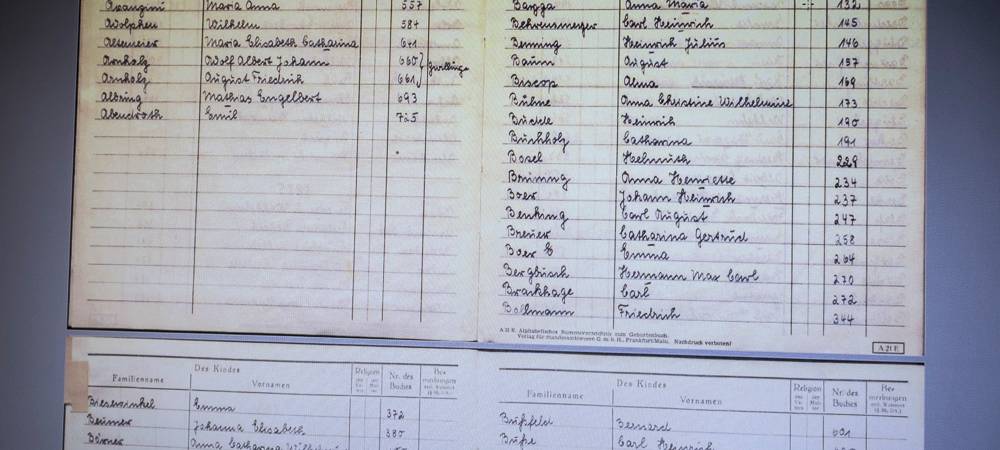 Maria Anna 557
Adolphen Wilhelm 584
Altemeier Maria Elisabeth Catharina 641
Arnholz Adolf Albert Johann 660
Arnholz August Friedrik 661
Zwillinge
Albring Mathias Engelbert 693
Abendroth Emil 725
Bargga Anna Maria 132
Behrensmeyer Carl Heinrich 145
Benning Heinrich Julius 146
Baum August 157
Biscop Alma 169
Bühne Anna Christine Wilhelmine 173
Buckle Heinrich 190
Buchholz Catharina 191
Bosel Helmuth 229
Brüning Anna Henriette 234
Boer Johann Heinrich 237
Benking Carl August 247
Breuer Catharina Gertrud 258
Boer C Emma 264
Bergbusch Hermann Max Carl 270
Brackhage Carl 272
Bollmann Friedrich 344
A 21 E. Alphabetisches Namensverzeichnis zum Geburtenbuch.
Verlag für Standesamtswesen G. m. b. H., Frankfurt/Main. Nachdruck verboten!
A 21 E
Des Kindes
Familienname Vornamen Religion Nr. des Buches Bemerkungen
Bieserwinkel Emma 372
Beumer Johanna Elisabeth 380
Börner Anna Catharina
Des Kindes
Familienname Vornamen Religion Nr. des Buches Bemerkungen
Bußfeld Bernard
Buße Carl Heinrich